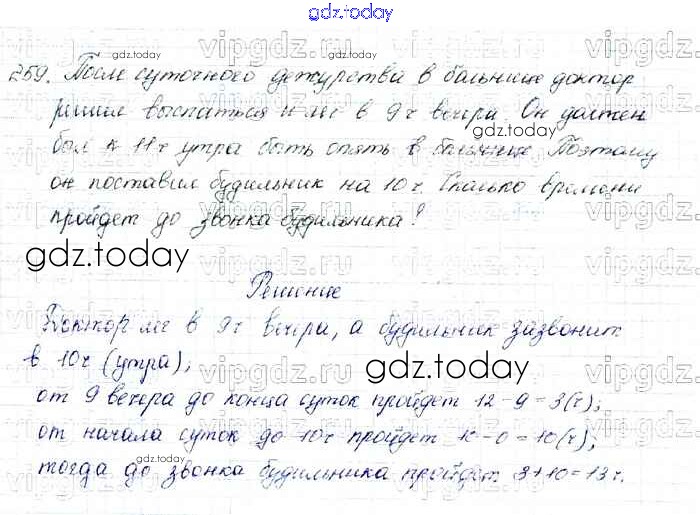 gdz.today
259. После суточного дежурства в больнице доктор
решил выспаться и лег в 9 ч вечера. Он должен
был к 11 ч утра быть опять в больнице. Поэтому
он поставил будильник на 10 ч. Сколько времени
пройдет до звонка будильника?
gdz.today
Решение
Доктор лег в 9 ч вечера, а будильник зазвонит
в 10 ч (утра);
gdz.today
от 9 вечера до конца суток пройдет 12 - 9 = 3 (ч);
от начала суток до 10 ч пройдет 10 - 0 = 10 (ч);
тогда до звонка будильника пройдет 3 + 10 = 13 ч.